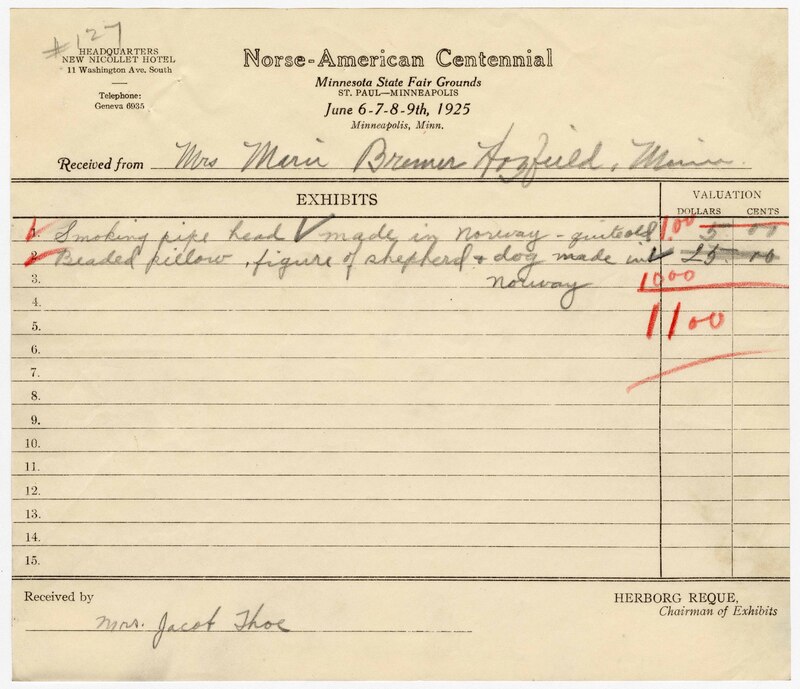 #127
HEADQUARTERS
NEW NICOLLET HOTEL
11 Washington Ave. South
Telephone:
Geneva 6935
Norse-American Centennial
Minnesota State Fair Grounds
ST. PAUL—MINNEAPOLIS
June 6-7-8-9th, 1925
Minneapolis, Minn.
Received from Mrs Marie Bremer Hayfield, Minn.
EXHIBITS
VALUATION
DOLLARS CENTS
1. Smoking pipe head made in Norway - quite old 1.00 5 00
2. Beaded pillow, figure of shepherd + dog made in 25 00
3. Norway 10 00
4.
5. 11 00
6.
7.
8.
9.
10.
11.
12.
13.
14.
15.
Received by
Mrs. Jacob Thoe
HERBORG REQUE,
Chairman of Exhibits